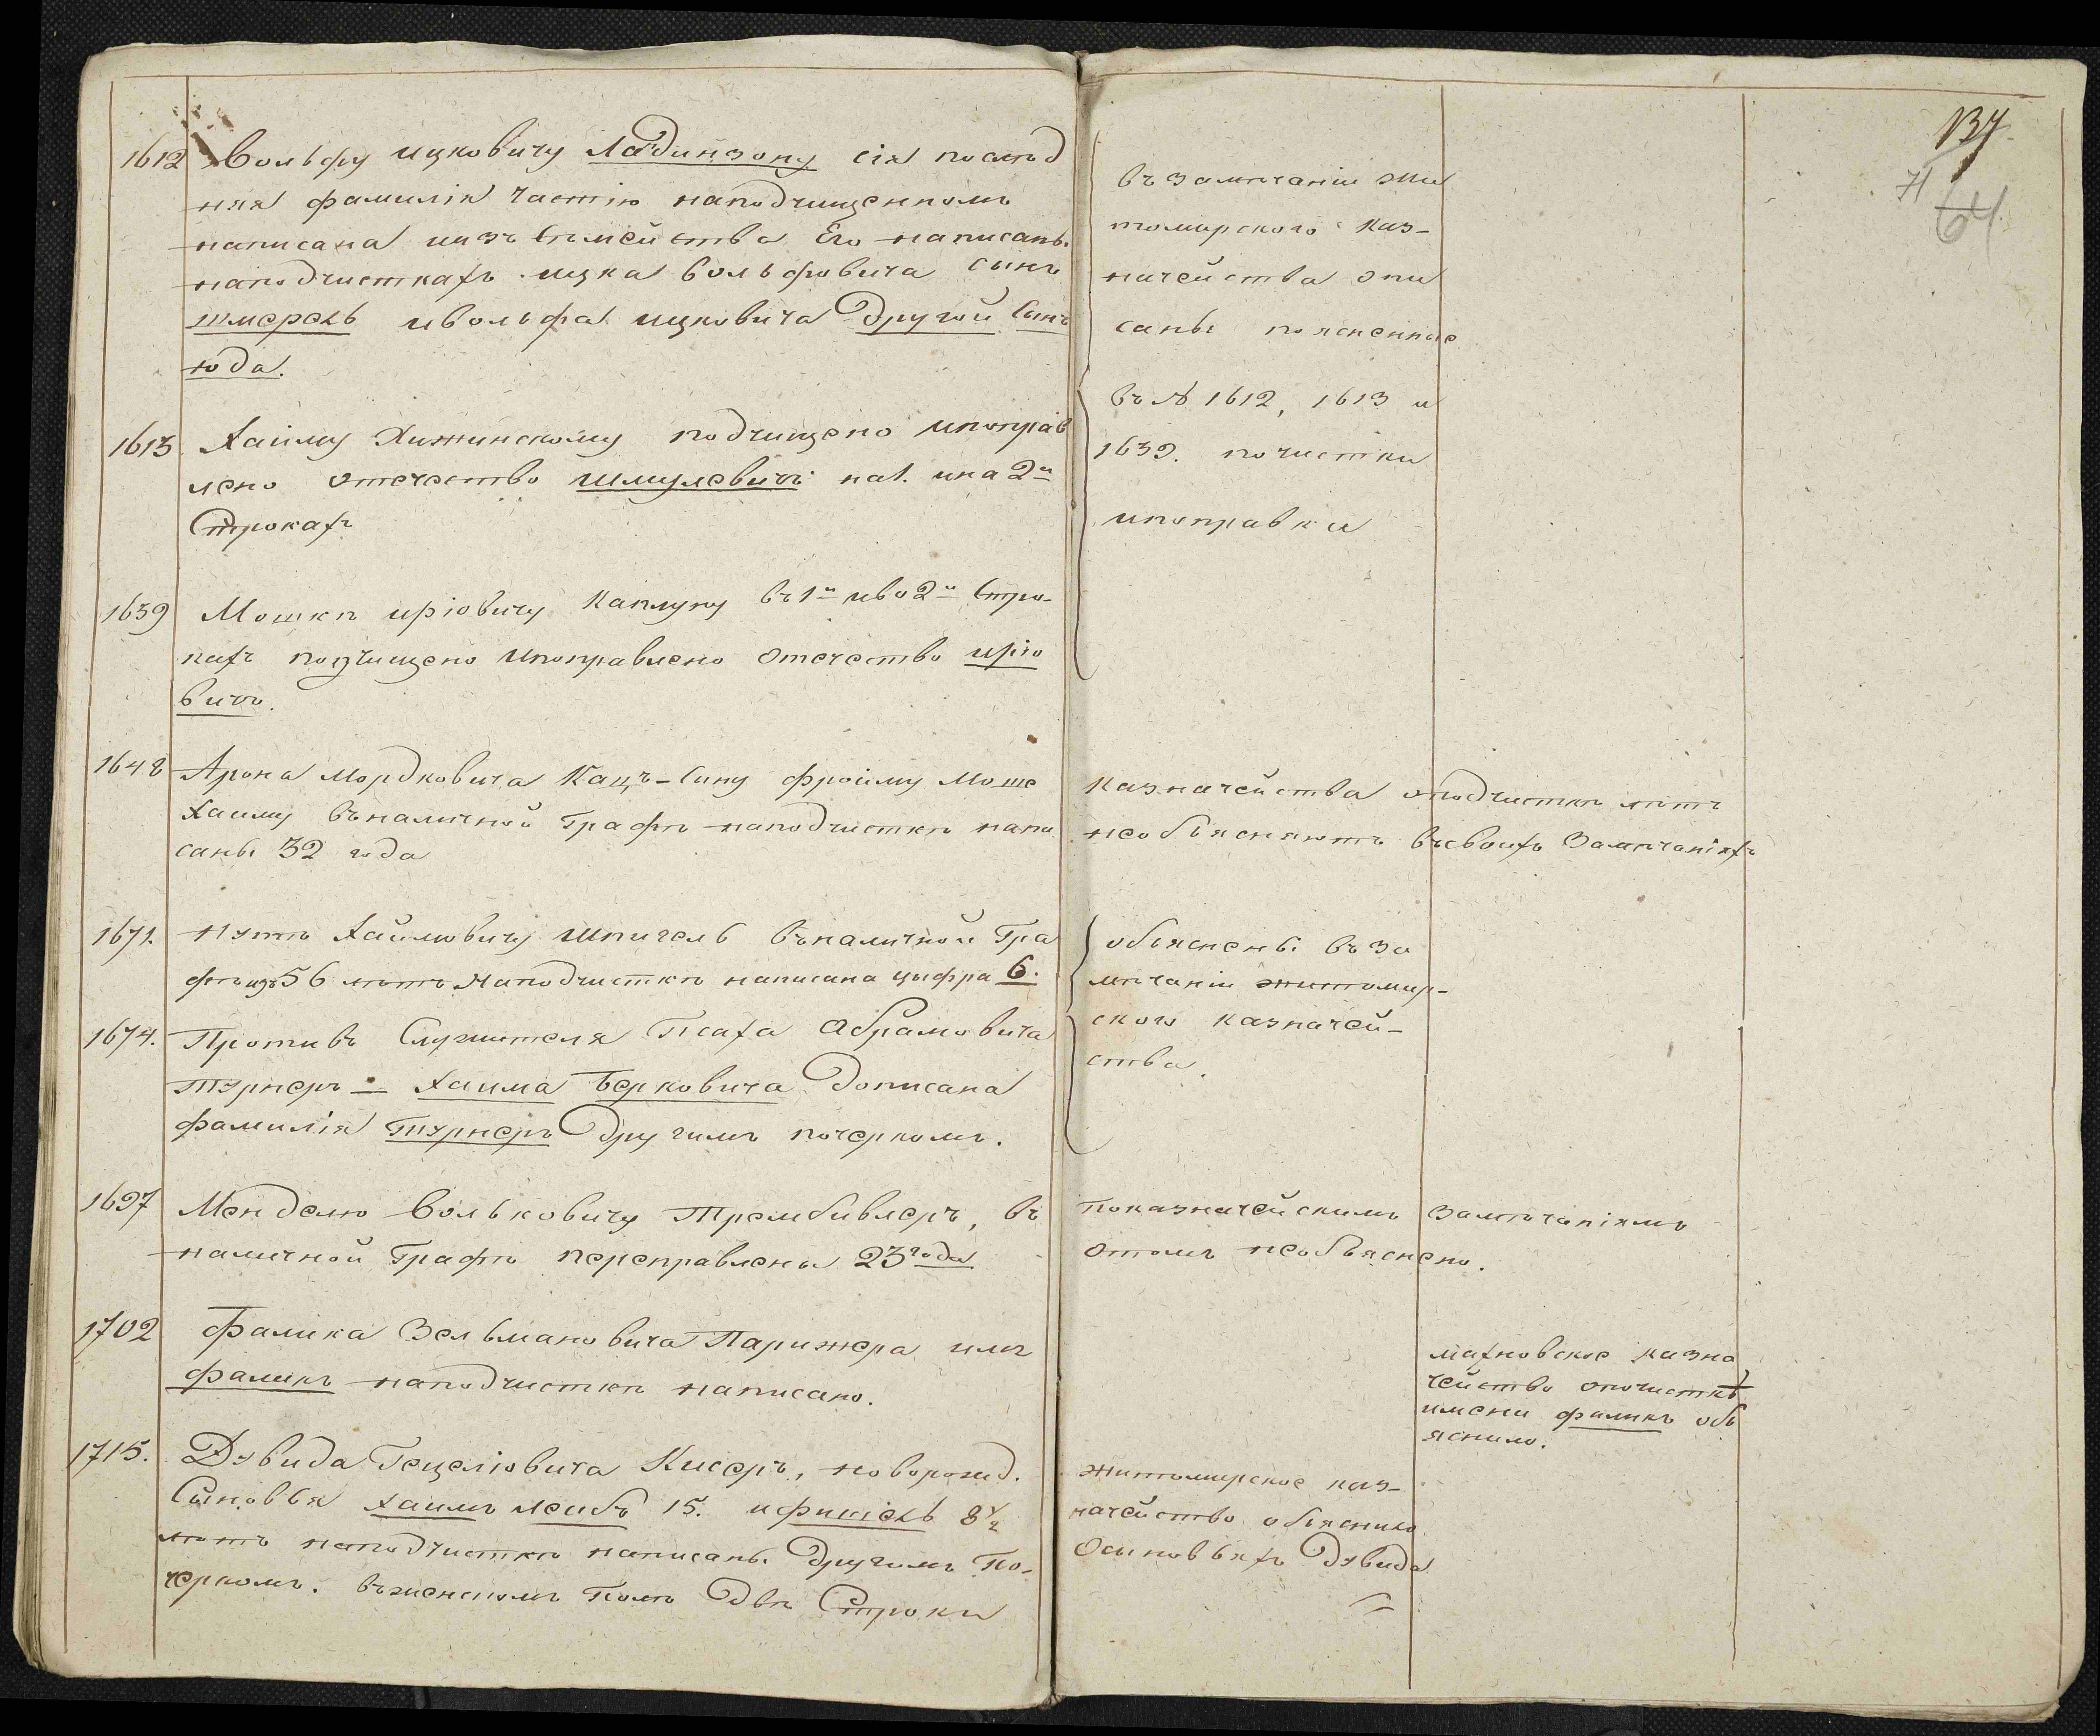 1612 Вольфу ицковичу Ладинзону сія послѣд
няя фамилія частію наподчищенномъ
написана иизъ Сѣмейства Его написаны
наподчисткахъ ицка Вольфовича сынъ
шмерель ивольфа ицковича Другой Сынъ
юда.
1613 Хаиму Хижинскому подчищено ипоправ
лено отечество шмулевичъ на 1. ина 2й
Строкахъ
1639 Мошкѣ иріовичу Каплуну въ 1й иво 2й Стро-
кахъ подчищено ипоправлено отечество иріо
вичъ.
1648 Арона Мордковича Кацъ-Сину фроиму Моше
Хаиму въналичной Графѣ наподчисткѣ напи
саны 32 года
1671. Нутѣ Хаймовичу шпигель въналичной Гра
фѣ изъ 56 лѣтъ наподчисткѣ написана цыфра 6.
1674. Противъ Служителя Псаха Абрамовича
тэрнеръ — Хаима Берковича Дописана
фамилія тэрнеръ Другимъ почеркомъ.
1697 Менделю Вольковичу Трембивлеръ, въ
наличной Графѣ переправлены 23 года
1702 Фалика Зельмановича Парижера имя
фаликъ наподчисткѣ написано.
1715. Дэвида Гецеліовича Кисеръ, новорожд.
Сыновья хаимъ лейбъ 15. ифишель 8½
лѣтъ наподчисткѣ написаны Другимъ По-
черкомъ. въженскомъ Полѣ Двѣ Строки
137
71
64
въ замѣчаніи жи
томирского Каз-
начейства опи
саны поясненные
въ № 1612, 1613 и
1639. почистки
ипоправки
Казначейства оподчисткѣ лѣтъ
необъясняютъ въсвоихъ Замѣчаніяхъ
объяснены въ за
мѣчаніи житомир-
ского Казначей-
ства.
Показначейскимъ Замѣчаніямъ
отомъ необъяснено.
махновское казна
чейство опочисткѣ
имени фаликъ объ
яснило.
житомирское каз-
начейство объяснило
Осыновьяхъ Дэвида